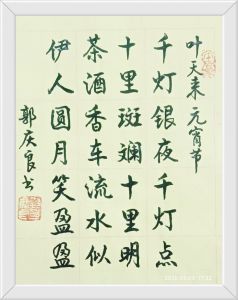 叶天来元宵节
千灯银夜千灯点
十里斑斓十里明
茶酒香车流水似
伊人圆月笑盈盈
郭庆良书